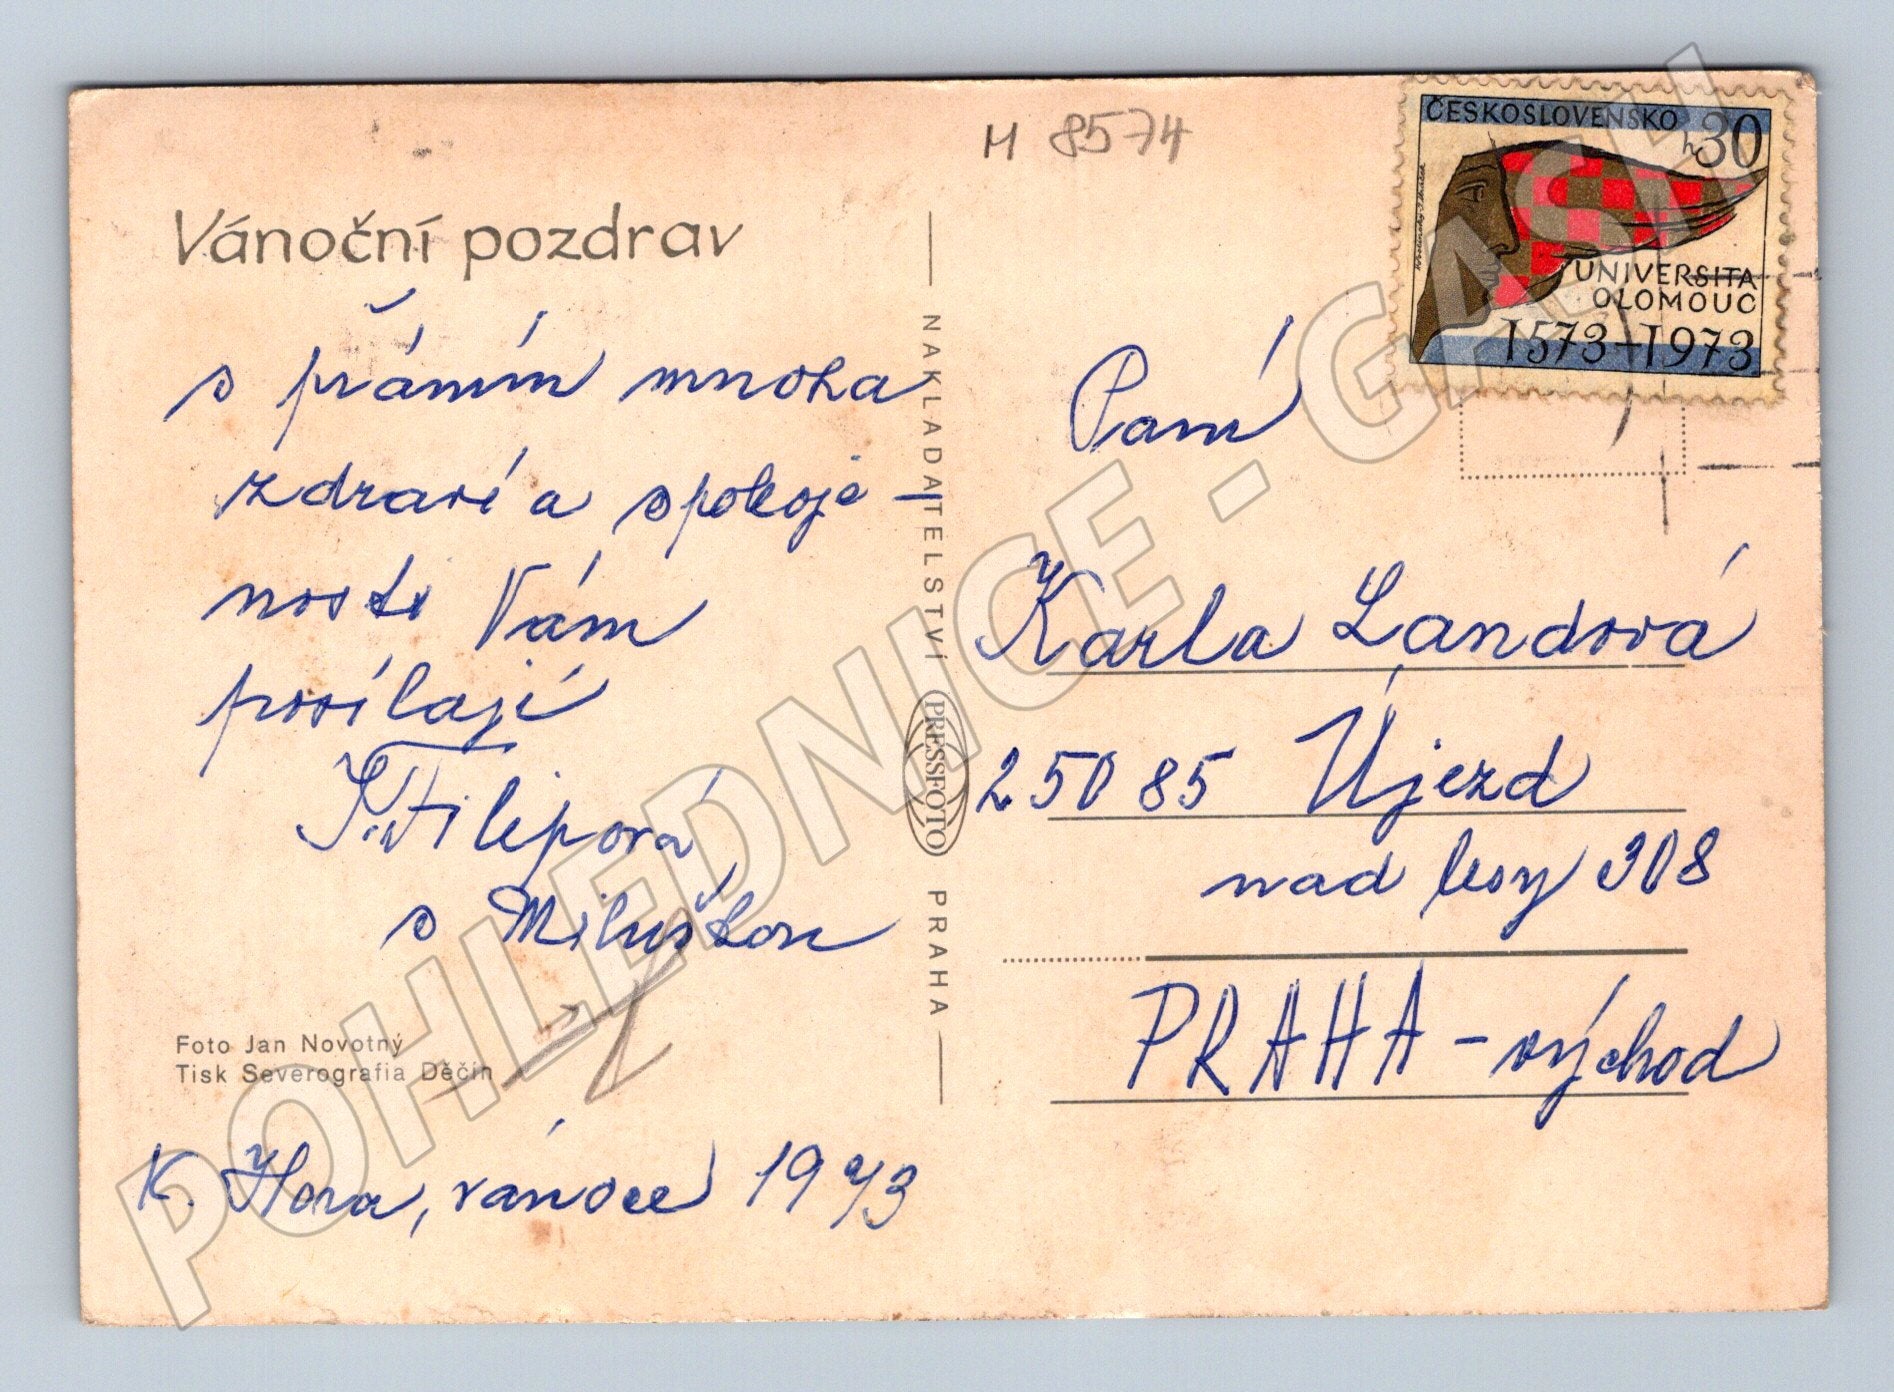 M 8574
ČESKOSLOVENSKO
h 30
UNIVERSITA
OLOMOUC
1573-1973
Vánoční pozdrav
s přáním mnoha
zdraví a spokoje-
nosti Vám
posílají
Filipová
s Miluškou
Foto Jan Novotný
Tisk Severografia Děčín
K. Hora, vánoce 1973
NAKLADATELSTVÍ PRESSFOTO PRAHA
Paní
Karla Landová
250 85 Újezd
nad lesy 308
PRAHA - východ
POHLEDNICE - GASH